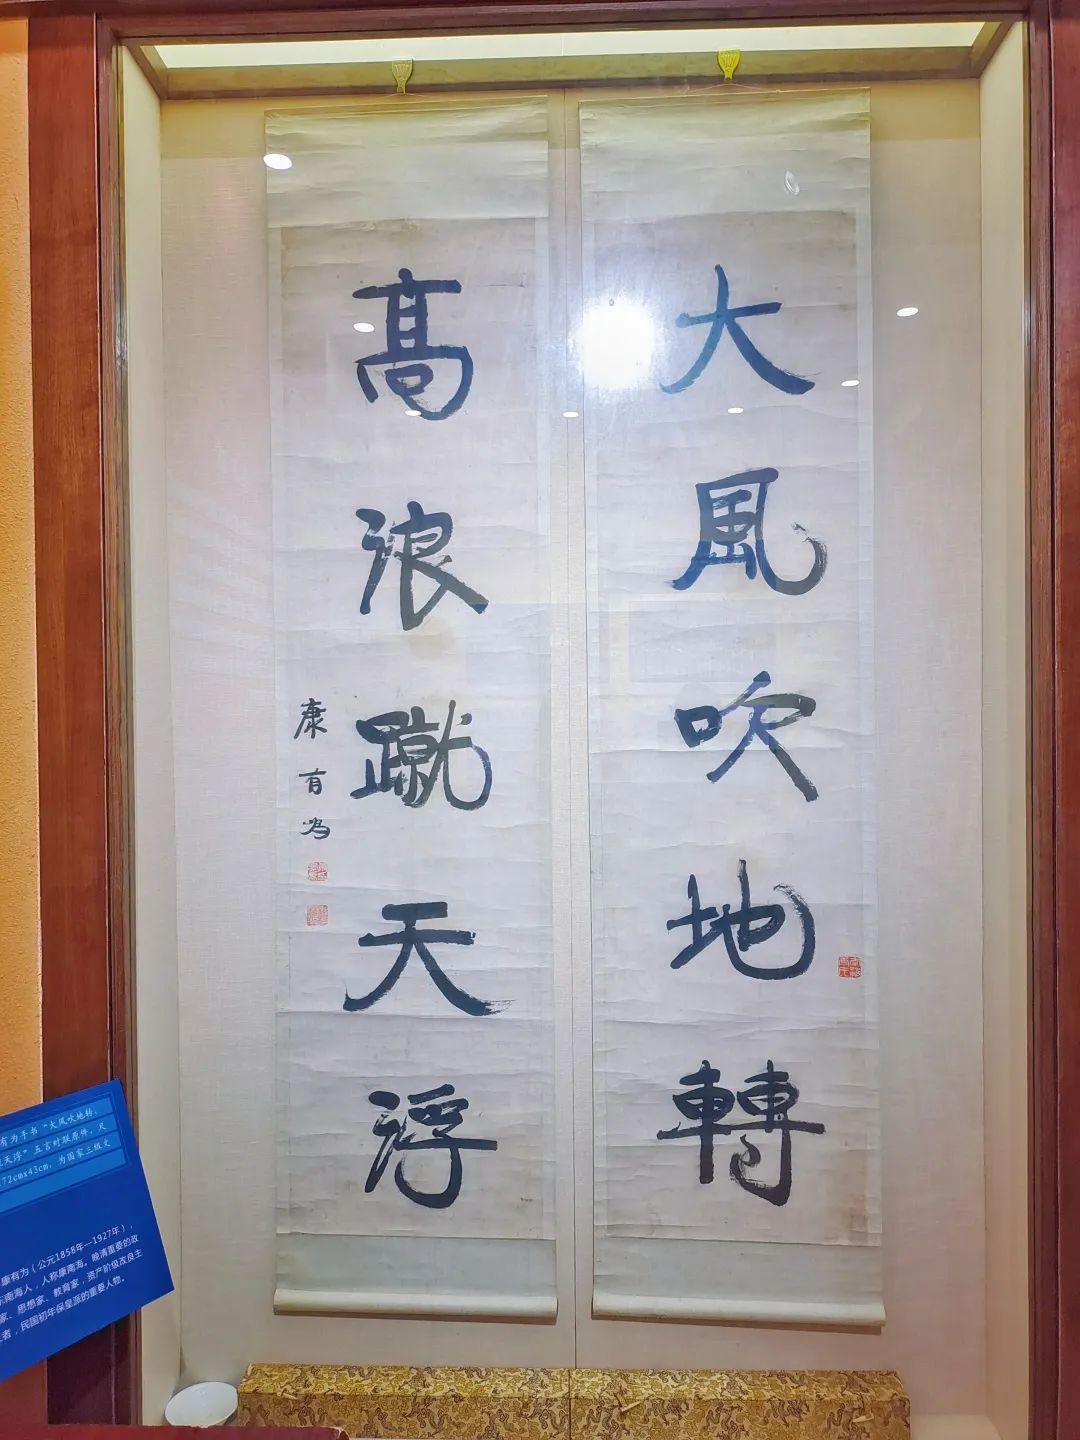 大風吹地轉
高浪蹴天浮
康有為
有为手书“大风吹地转，
天浮”五言对联原件，尺
72cmx43cm，为国家三级文
康有为（公元1858年—1927年），
东南海人，人称康南海。晚清重要的政
家、思想家、教育家，资产阶级改良主
者，民国初年保皇派的重要人物。